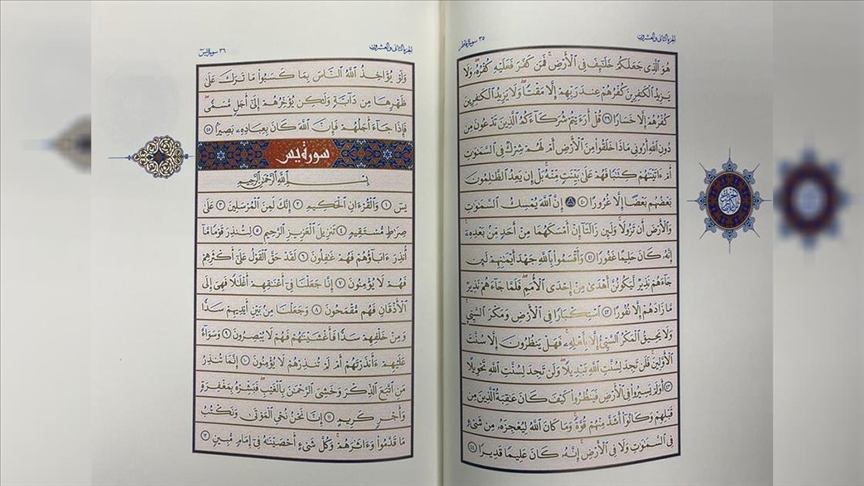 الجزء الثاني والعشرون
٣٥ سورة فاطر
هُوَ ٱلَّذِى جَعَلَكُمْ خَلَٰٓئِفَ فِى ٱلْأَرْضِ فَمَن كَفَرَ فَعَلَيْهِ كُفْرُهُۥ وَلَا
يَزِيدُ ٱلْكَٰفِرِينَ كُفْرُهُمْ عِندَ رَبِّهِمْ إِلَّا مَقْتًا وَلَا يَزِيدُ ٱلْكَٰفِرِينَ
كُفْرُهُمْ إِلَّا خَسَارًا ٣٩ قُلْ أَرَءَيْتُمْ شُرَكَآءَكُمُ ٱلَّذِينَ تَدْعُونَ مِن
دُونِ ٱللَّهِ أَرُونِى مَاذَا خَلَقُوا۟ مِنَ ٱلْأَرْضِ أَمْ لَهُمْ شِرْكٌ فِى ٱلسَّمَٰوَٰتِ
أَمْ ءَاتَيْنَٰهُمْ كِتَٰبًا فَهُمْ عَلَىٰ بَيِّنَتٍ مِّنْهُ بَلْ إِن يَعِدُ ٱلظَّٰلِمُونَ
بَعْضُهُم بَعْضًا إِلَّا غُرُورًا ٤٠ إِنَّ ٱللَّهَ يُمْسِكُ ٱلسَّمَٰوَٰتِ
وَٱلْأَرْضَ أَن تَزُولَا وَلَئِن زَالَتَآ إِنْ أَمْسَكَهُمَا مِنْ أَحَدٍ مِّنۢ بَعْدِهِۦٓ
إِنَّهُۥ كَانَ حَلِيمًا غَفُورًا ٤١ وَأَقْسَمُوا۟ بِٱللَّهِ جَهْدَ أَيْمَٰنِهِمْ لَئِن
جَآءَهُمْ نَذِيرٌ لَّيَكُونُنَّ أَهْدَىٰ مِنْ إِحْدَى ٱلْأُمَمِ فَلَمَّا جَآءَهُمْ نَذِيرٌ
مَّا زَادَهُمْ إِلَّا نُفُورًا ٤٢ ٱسْتِكْبَارًا فِى ٱلْأَرْضِ وَمَكْرَ ٱلسَّيِّئِ
وَلَا يَحِيقُ ٱلْمَكْرُ ٱلسَّيِّئُ إِلَّا بِأَهْلِهِۦ فَهَلْ يَنظُرُونَ إِلَّا سُنَّتَ
ٱلْأَوَّلِينَ فَلَن تَجِدَ لِسُنَّتِ ٱللَّهِ تَبْدِيلًا وَلَن تَجِدَ لِسُنَّتِ ٱللَّهِ تَحْوِيلًا
٤٣ أَوَلَمْ يَسِيرُوا۟ فِى ٱلْأَرْضِ فَيَنظُرُوا۟ كَيْفَ كَانَ عَٰقِبَةُ ٱلَّذِينَ مِن
قَبْلِهِمْ وَكَانُوٓا۟ أَشَدَّ مِنْهُمْ قُوَّةً وَمَا كَانَ ٱللَّهُ لِيُعْجِزَهُۥ مِن شَىْءٍ
فِى ٱلسَّمَٰوَٰتِ وَلَا فِى ٱلْأَرْضِ إِنَّهُۥ كَانَ عَلِيمًا قَدِيرًا ٤٤
الجزء الثاني والعشرون
٣٦ سورة يس
وَلَوْ يُؤَاخِذُ ٱللَّهُ ٱلنَّاسَ بِمَا كَسَبُوا۟ مَا تَرَكَ عَلَىٰ
ظَهْرِهَا مِن دَآبَّةٍ وَلَٰكِن يُؤَخِّرُهُمْ إِلَىٰٓ أَجَلٍ مُّسَمًّى
فَإِذَا جَآءَ أَجَلُهُمْ فَإِنَّ ٱللَّهَ كَانَ بِعِبَادِهِۦ بَصِيرًۢا ٤٥
سورة يس
بِسْمِ ٱللَّهِ ٱلرَّحْمَٰنِ ٱلرَّحِيمِ
يسٓ ١ وَٱلْقُرْءَانِ ٱلْحَكِيمِ ٢ إِنَّكَ لَمِنَ ٱلْمُرْسَلِينَ ٣ عَلَىٰ
صِرَٰطٍ مُّسْتَقِيمٍ ٤ تَنزِيلَ ٱلْعَزِيزِ ٱلرَّحِيمِ ٥ لِتُنذِرَ قَوْمًا مَّآ
أُنذِرَ ءَابَآؤُهُمْ فَهُمْ غَٰفِلُونَ ٦ لَقَدْ حَقَّ ٱلْقَوْلُ عَلَىٰٓ أَكْثَرِهِمْ
فَهُمْ لَا يُؤْمِنُونَ ٧ إِنَّا جَعَلْنَا فِىٓ أَعْنَٰقِهِمْ أَغْلَٰلًا فَهِىَ إِلَى
ٱلْأَذْقَانِ فَهُم مُّقْمَحُونَ ٨ وَجَعَلْنَا مِنۢ بَيْنِ أَيْدِيهِمْ سَدًّا
وَمِنْ خَلْفِهِمْ سَدًّا فَأَغْشَيْنَٰهُمْ فَهُمْ لَا يُبْصِرُونَ ٩ وَسَوَآءٌ
عَلَيْهِمْ ءَأَنذَرْتَهُمْ أَمْ لَمْ تُنذِرْهُمْ لَا يُؤْمِنُونَ ١٠ إِنَّمَا تُنذِرُ
مَنِ ٱتَّبَعَ ٱلذِّكْرَ وَخَشِىَ ٱلرَّحْمَٰنَ بِٱلْغَيْبِ فَبَشِّرْهُ بِمَغْفِرَةٍ
وَأَجْرٍ كَرِيمٍ ١١ إِنَّا نَحْنُ نُحْىِ ٱلْمَوْتَىٰ وَنَكْتُبُ
مَا قَدَّمُوا۟ وَءَاثَٰرَهُمْ وَكُلَّ شَىْءٍ أَحْصَيْنَٰهُ فِىٓ إِمَامٍ مُّبِينٍ ١٢